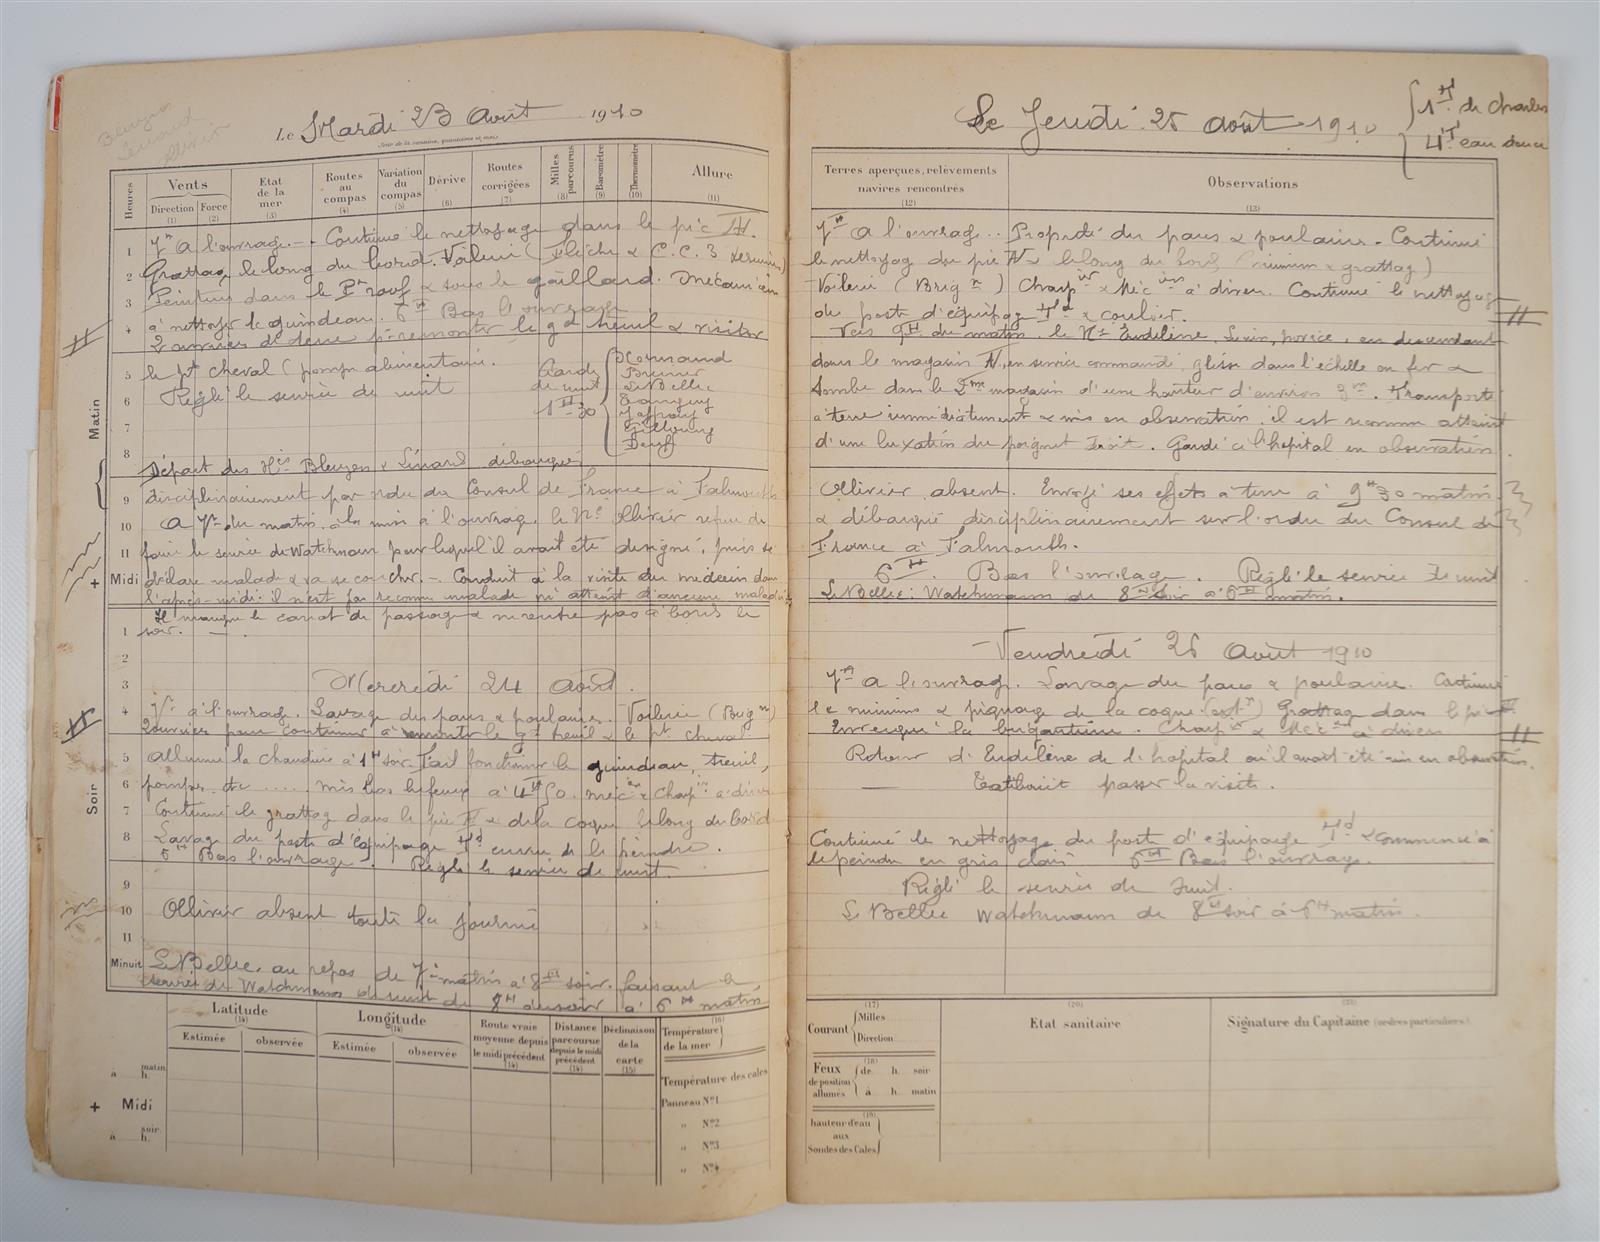 Le Mardi 23 Août 1910
Jour de la semaine, quantième et mois
Heures
Vents
Direction (1)
Force (2)
Etat de la mer (3)
Routes au compas (4)
Variation du compas (5)
Dérive (6)
Routes corrigées (7)
Milles parcourus (8)
Baromètre (9)
Thermomètre (10)
Allure (11)
Matin
1 7h A l'ouvrage. - Continué le nettoyage dans le pic
2 Grattage le long du bord. Voilerie (Flèche & C.C. 3
3 Peinture dans le & sous le gaillard. Mécanicien
à nettoyer le guindeau. 6H Bas l'ouvrage
4 2 ouvriers de terre pr remonter le gd treuil & visiter
5 le pt cheval (pompe alimentaire.
6 Réglé le service de nuit
Garde de nuit
1H=30
Normand
Brunner
Le Bellec
Tanguy
7
8
Départ des Blevzen & Lénard débarqués
9 disciplinairement par ordre du Consul de France à Falmouth
10 A 7h du matin à la mise à l'ouvrage, le Né Ollivier refuse de
11 faire le service de Watchman pour lequel il avait été désigné, puis se
+ Midi déclare malade & va se coucher. - Conduit à la visite du médecin dans
l'après-midi: il n'est pas reconnu malade ni atteint d'aucune maladie
Il manque le canot de passage & ne rentre pas à bord le
1 soir.
2
3 Mercredi 24 Août.
Soir
4 7h à l'ouvrage. Lavage des parcs & poulaines. Voilerie (Brign)
2 ouvriers pour continuer à remonter le gd treuil & le pt cheval
5 Allumé la chaudière à 1H soir. Fait fonctionner le guindeau, treuil,
6 pompes etc ..... mis bas les feux à 4H50. Mécen & Charpir à divers
7 Continué le grattage dans le pic & de la coque le long du bord
8 Lavage du poste d'équipage Td en vue de le peindre.
6H Bas l'ouvrage. Réglé le service de nuit.
9
10 Ollivier absent toute la journée
11
Minuit Le Bellec au repos de 7h matin à 8H soir, faisant le
service de Watchmann de nuit de 8H du soir à 6H matin
Latitude (14)
Estimée
observée
Longitude (14)
Estimée
observée
Route vraie moyenne depuis le midi précédent (14)
Distance parcourue depuis le midi précédent (14)
Déclinaison de la carte (15)
(16)
Température de la mer
à h. matin
+ Midi
à h. soir
Température des cales
Panneau No1
" No2
" No3
" No4
Le Jeudi 25 août 1910
1H de charbon
4T eau douce
Terres aperçues, relèvements navires rencontrés (12)
Observations (13)
7H A l'ouvrage .. Propreté des parcs & poulaines. Continué
le nettoyage du pic & le long du bord (minium & grattage)
Voilerie (Brign) Charpir & Mécien à divers. Continué le nettoyage
du poste d'équipage Td & couloir.
Vers 9H du matin, le Né Eudeline, novice, en descendant
dans le magasin , en service commandé, glisse dans l'échelle en fer &
tombe dans le 2me magasin d'une hauteur d'environ 3m. Transporté
à terre immédiatement & mis en observation, il est reconnu atteint
d'une luxation du poignet droit. Gardé à l'hôpital en observation.
Ollivier absent. Envoyé ses effets à terre à 9H30 matin
& débarqué disciplinairement sur l'ordre du Consul de
France à Falmouth.
6H. Bas l'ouvrage. Réglé le service de nuit
Le Bellec: Watchmann de 8H soir à 6H matin.
Vendredi 26 Août 1910
7H A l'ouvrage. Lavage des parcs & poulaine. Continué
le minium & piquage de la coque (extr) Grattage dans le pic
Enverguée la brigantine. Charpir & Mécen à divers
Retour d'Eudeline de l'hôpital où il avait été mis en observation.
Tatibouit passer la visite.
Continué le nettoyage du poste d'équipage Td & commencé à
le peindre en gris clair 6H Bas l'ouvrage.
Réglé le service de nuit.
Le Bellec Watchmann de 8H soir à 6H matin.
(17)
Courant
Milles
Direction
(18)
Feux de position allumés
de h. soir
à h. matin
(19)
hauteur d'eau aux Sondes des Cales
(20)
Etat sanitaire
(21)
Signature du Capitaine (ordres particuliers)